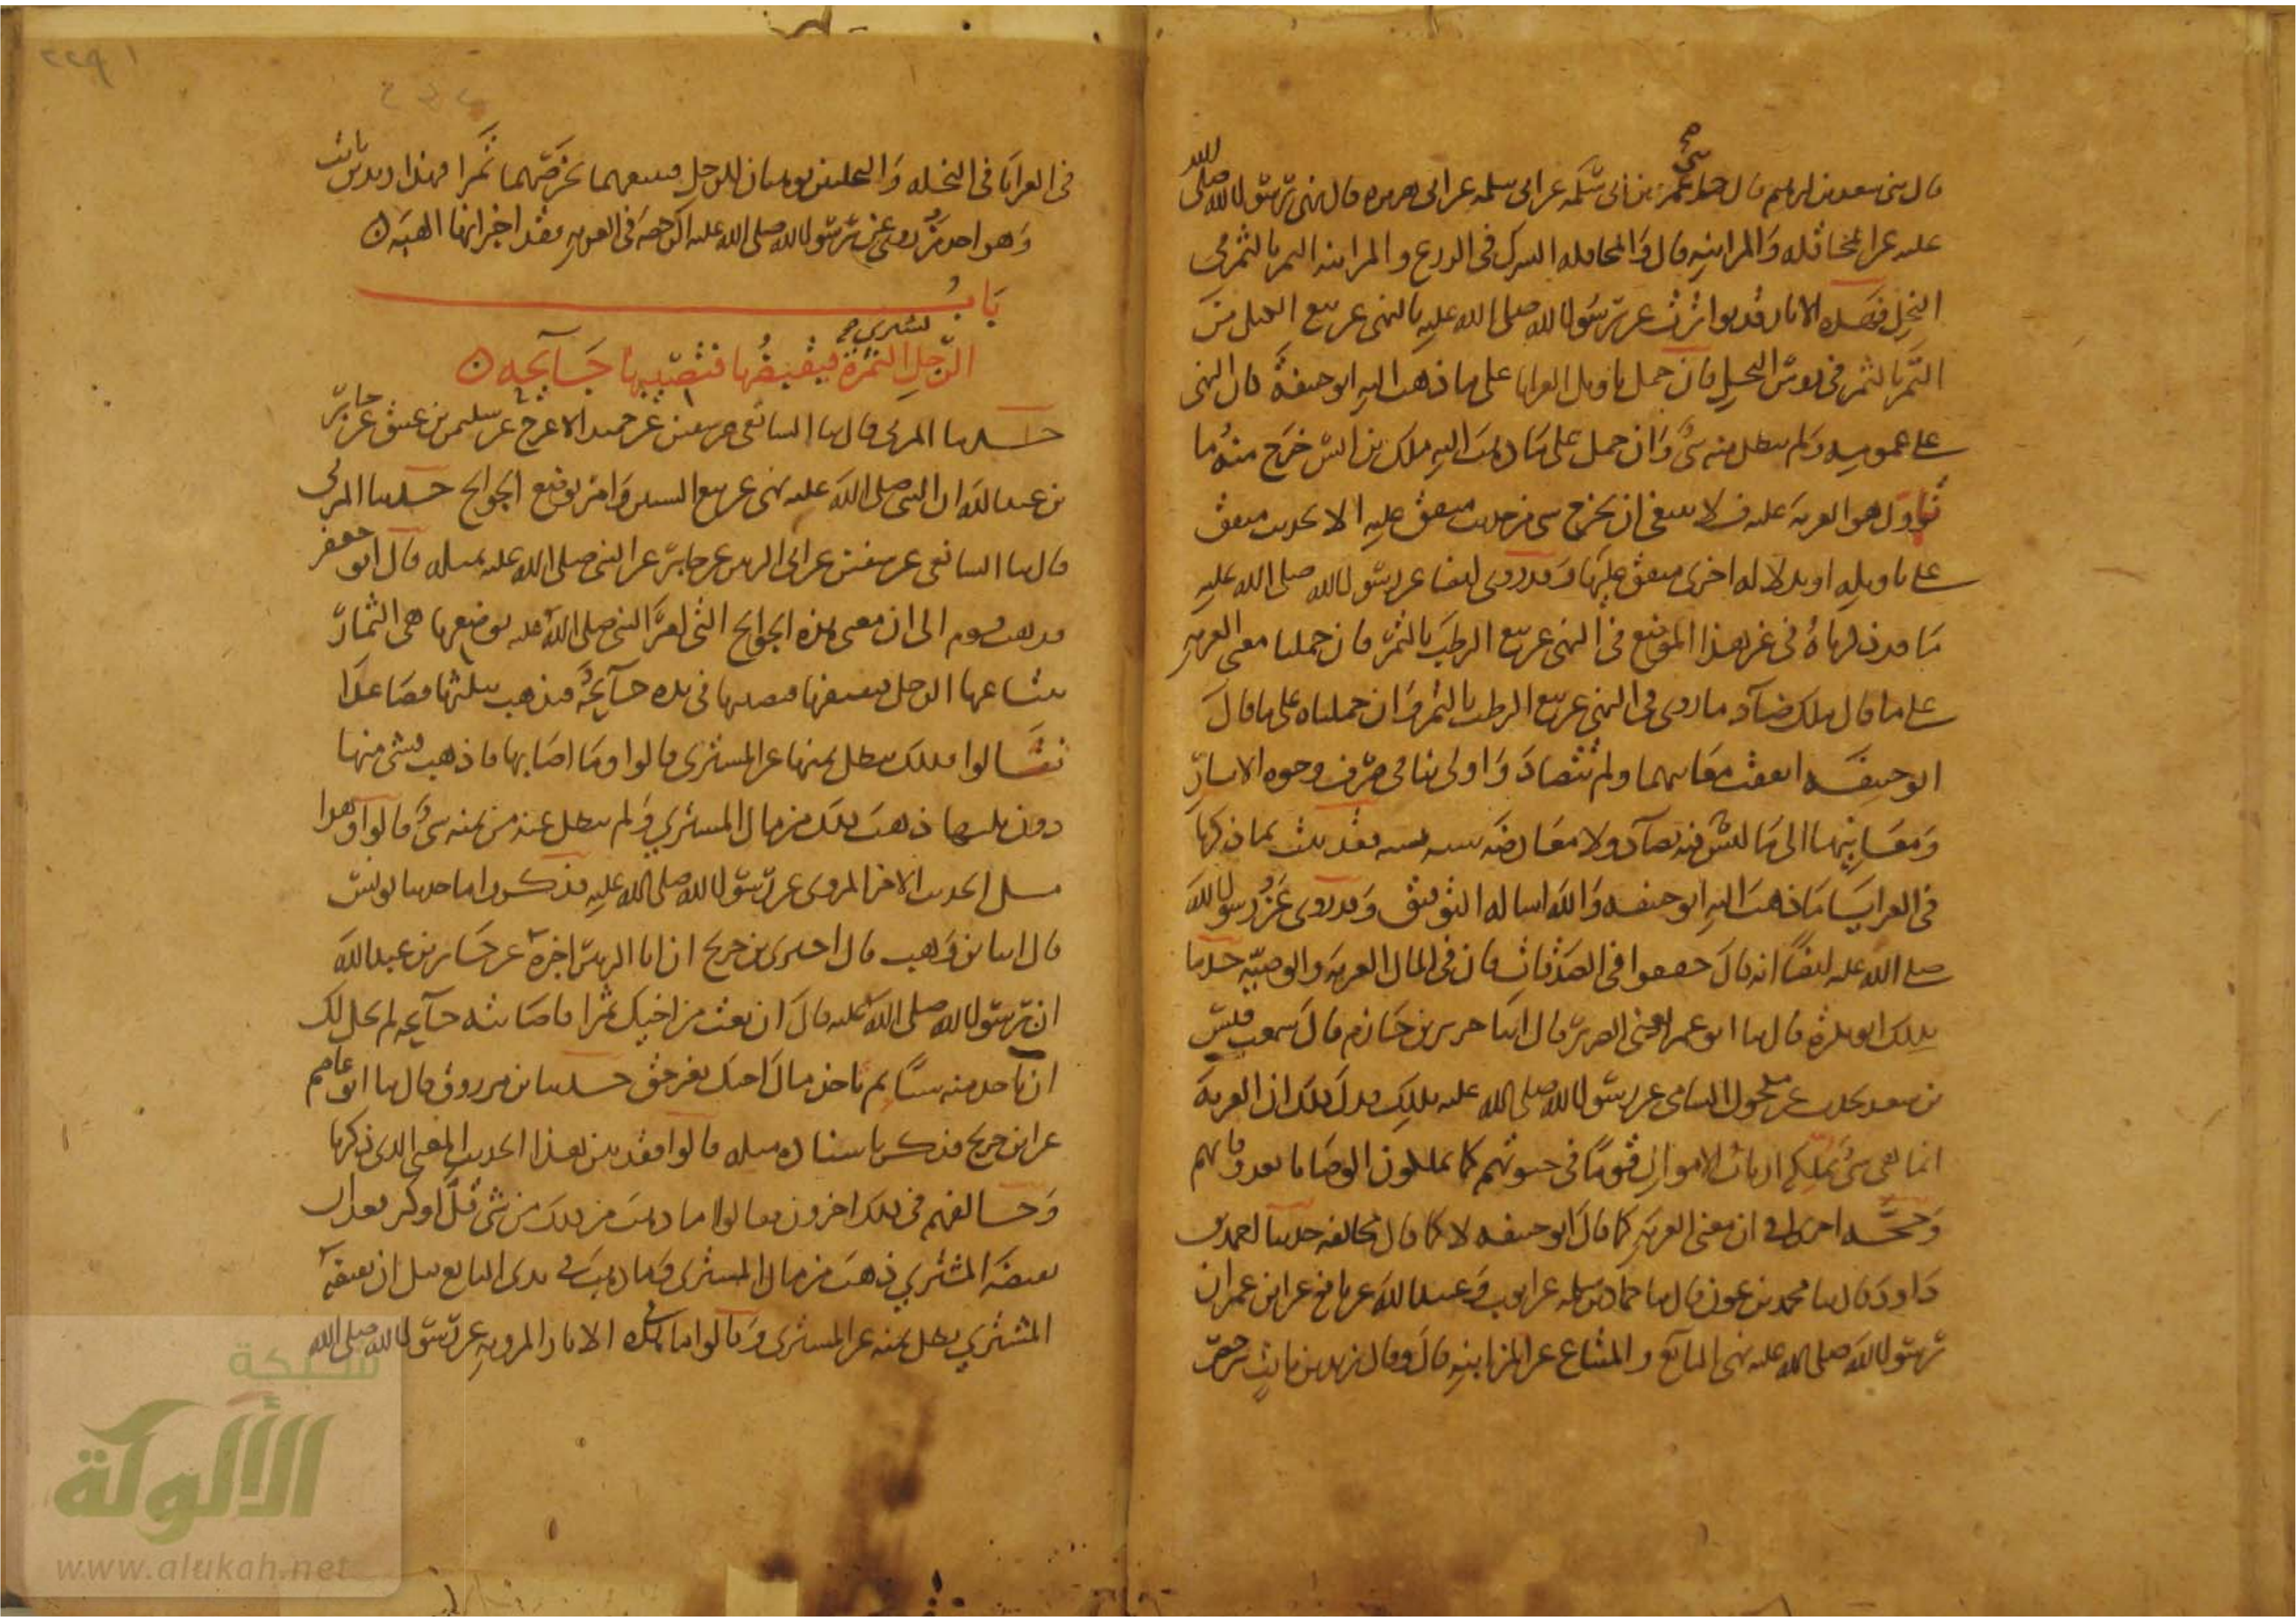 قال ثنى سعد بن ابرهيم قال حدثنى عمر بن ابى سلمة عن ابى سلمه عن ابى هريره قال نهى رسول الله صلى الله
عليه عن المحاقله والمزابنه قال والمحاقله الشرك فى الزرع والمزابنه التمر بالثمر فى
النخل فهذه الاثار قد تواترت عن رسول الله صلى الله عليه بالنهى عن بيع الكيل من
التمر بالثمر فى روس النخل فان حمل تاويل العرايا على ما ذهب اليه ابو حنيفة كان النهى
على عمومه ولم يبطل منه شى وان حمل على ما ذهب اليه ملك بن انس خرج منه ما
تاول هو العريه عليه ولا ينبغى ان يخرج شى من حديث متفق عليه الا بحديث متفق
على تاويله او بدلاله اخرى متفق عليها وقد روى ايضا عن رسول الله صلى الله عليه
ما قد ذكرناه فى غير هذا الموضع فى النهى عن بيع الرطب بالتمر فان حملنا معنى العريه
على ما قال ملك ضاد ما روى فى النهى عن بيع الرطب بالتمر وان حملناه على ما قال
ابو حنيفه اتفقت معانيهما ولم تتضاد واولى بنا فى صرف وجوه الاثار
ومعانيها الى ما ليس فيه تضاد ولا معارضه سنه بسنه فقد ثبت بما ذكرنا
فى العرايا ما ذهب اليه ابو حنيفه والله اساله التوفيق وقد روى عن رسول الله
صلى الله عليه ايضا انه قال خففوا فى الصدقات فان فى المال العريه والوصيه حدثنا
بذلك ابو بكره قال ثنا ابو عمر يعنى الضرير قال انا جرير بن حازم قال سمعت قيس
بن سعد يحدث عن مكحول الشامى عن رسول الله صلى الله عليه بذلك فدل ذلك ان العريه
انما هى شى يملكه ارباب الاموال قوما فى حيوتهم كما يملكون الوصايا بعد وفاتهم
وحجه اخرى فى ان معنى العريه كما قال ابو حنيفه لا كما قال مخالفه حدثنا احمد بن
داود قال ثنا محمد بن عون قال ثنا حماد بن سلمه عن ايوب وعبيد الله عن نافع عن ابن عمر ان
رسول الله صلى الله عليه نهى البايع والمبتاع عن المزابنه قال وقال زيد بن ثابت رخص
فى العرايا فى النخله والنخلتين توهبان للرجل فيبيعهما بخرصهما تمرا فهذا زيد بن ثابت
وهو احد من روى عن رسول الله صلى الله عليه الرخصه فى العريه فقد اخبر انها الهبه
باب
الرجل يشترى الثمرة فيقبضها فتصيبها جايحه
حدثنا المزنى قال ثنا الشافعى عن سفين عن حميد الاعرج عن سليمن بن عتيق عن جابر
بن عبد الله ان النبى صلى الله عليه نهى عن بيع السنين وامر بوضع الجوايح حدثنا المزنى
قال ثنا الشافعى عن سفين عن ابى الزبير عن جابر عن النبى صلى الله عليه بمثله قال ابو جعفر
فذهب قوم الى ان معنى هذه الجوايح التى امر النبى صلى الله عليه بوضعها هى الثمار
يبتاعها الرجل فيقبضها فتصيبها فى يده جايحه فيذهب بثلثها فصاعدا
فقالوا فذلك يبطل ثمنها عن المشترى قالوا وما اصابها فاذهب بشى منها
دون ثلثها ذهب ذلك من مال المشترى ولم يبطل عنه من ثمنه شى قالوا وهذا
مثل الحديث الاخر المروى عن رسول الله صلى الله عليه فذكروا ما حدثنا يونس
قال انا بن وهب قال اخبرنى بن جريج ان ابا الزبير اخبره عن جابر بن عبد الله
ان رسول الله صلى الله عليه قال ان بعت من اخيك ثمرا فاصابته جايحه لم يحل لك
ان تاخذ منه شيا بم تاخذ مال اخيك بغير حق حدثنا بن مرزوق قال ثنا ابو عاصم
عن ابن جريج فذكر باسناده مثله قالوا فقد بين هذا الحديث المعنى الذى ذكرنا
وخالفهم فى ذلك اخرون فقالوا ما ذهب من ذلك من شى قل او كثر بعد ان
يقبضه المشترى ذهب من مال المشترى وما ذهب فى يدى البايع قبل ان يقبضه
المشترى بطل ثمنه عن المشترى وقالوا ما فى هذه الاثار المرويه عن رسول الله صلى الله
شبكة
الألوكة
www.alukah.net